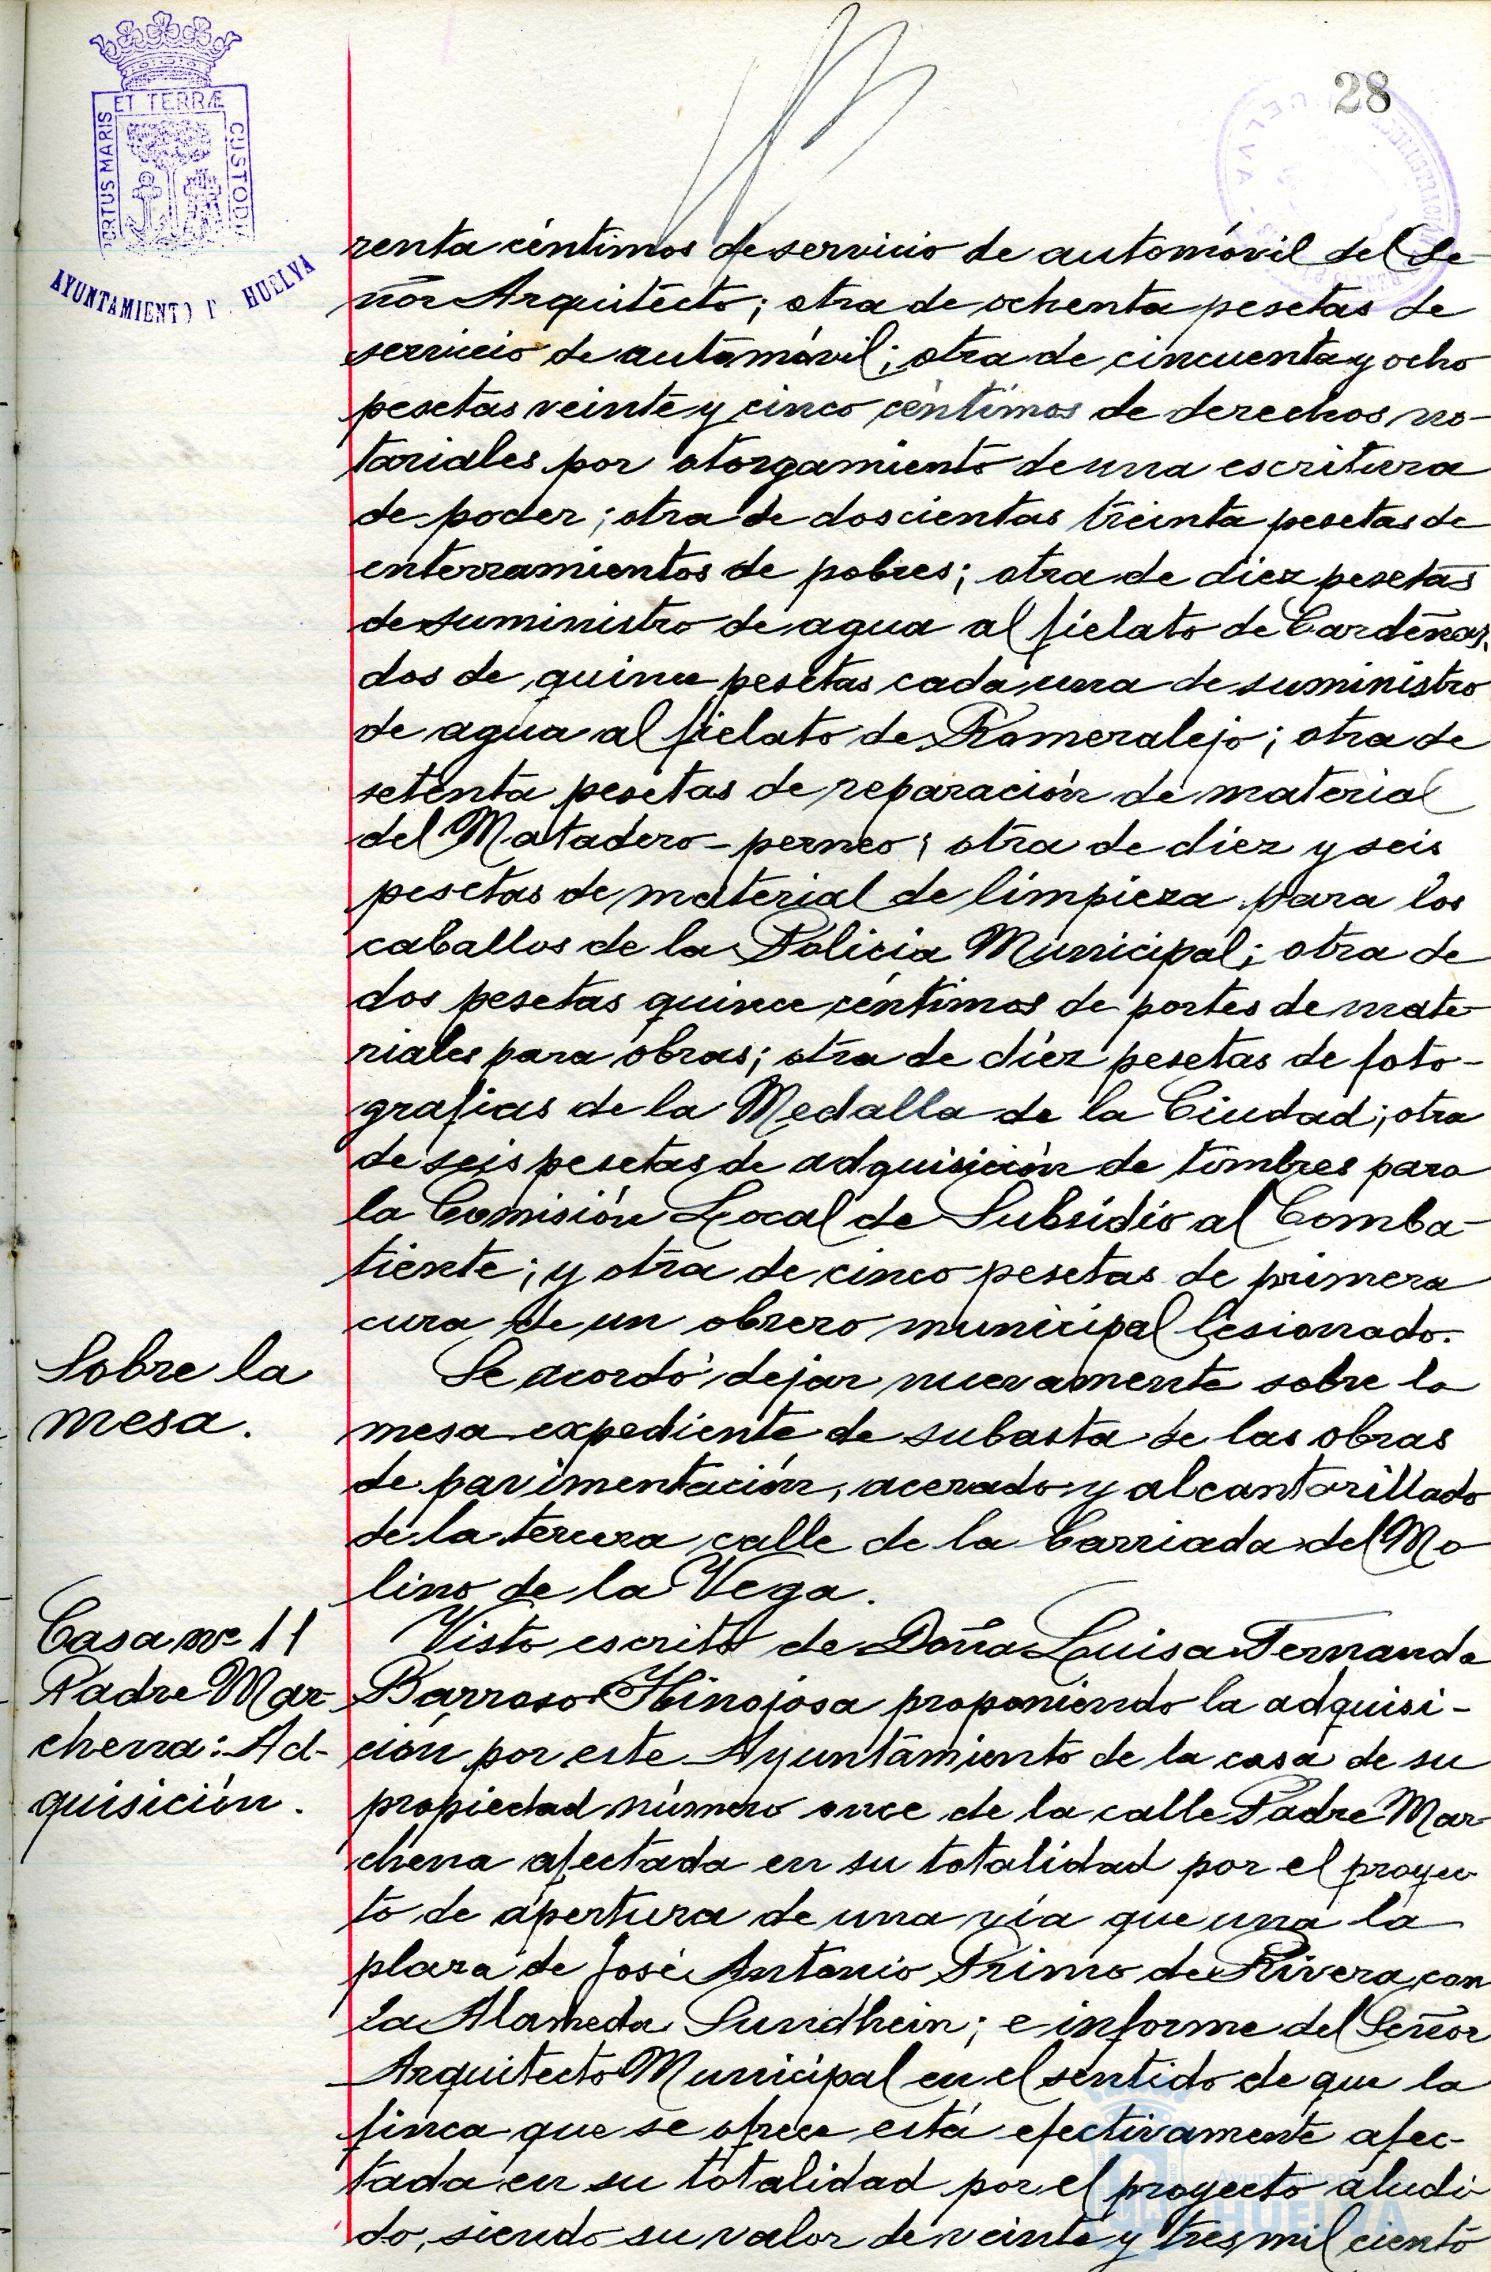 28
ET TERRÆ
PORTUS MARIS
CUSTODIA
AYUNTAMIENTO D. HUELVA
renta céntimos de servicio de automóvil del Se-
ñor Arquitecto; otra de ochenta pesetas de
servicio de automóvil; otra de cincuenta y ocho
pesetas veinte y cinco céntimos de derechos no-
tariales por otorgamiento de una escritura
de poder; otra de doscientas treinta pesetas de
enterramientos de pobres; otra de diez pesetas
de suministro de agua al fielato de Cardeñas;
dos de quince pesetas cada una de suministro
de agua al fielato de Romeralejo; otra de
setenta pesetas de reparación de material
del Matadero-perneo; otra de diez y seis
pesetas de material de limpieza para los
caballos de la Policia Municipal; otra de
dos pesetas quince céntimos de portes de mate-
riales para obras; otra de diez pesetas de foto-
grafias de la Medalla de la Ciudad; otra
de seis pesetas de adquisición de timbres para
la Comisión Local de Subsidio al Comba-
tiente; y otra de cinco pesetas de primera
cura de un obrero municipal lesionado.
Sobre la
mesa.
Se acordó dejar nuevamente sobre la
mesa expediente de subasta de las obras
de pavimentación, acerado y alcantarillado
de la tercera calle de la barriada del Mo
lino de la Vega.
Casa nº 11
Padre Mar
chena: Ad-
quisición.
Visto escrito de Doña Luisa Fernanda
Barroso Hinojosa proponiendo la adquisi-
ción por este Ayuntamiento de la casa de su
propiedad número once de la calle Padre Mar
chena afectada en su totalidad por el proyec
to de apertura de una via que una la
plaza de José Antonio Primo de Rivera, con
la Alameda Sundhein; e informe del Señor
Arquitecto Municipal en el sentido de que la
finca que se ofrece está efectivamente afec-
tada en su totalidad por el proyecto aludi
do, siendo su valor de veinte y tres mil ciento
Ayuntamiento de
HUELVA